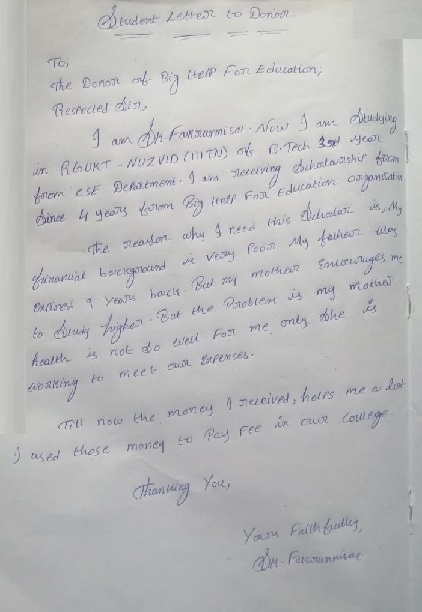 Student Letter to Donor
To,
The Donor of Big Help For Education,
Respected Sir,
I am Sk. Fakrunnisa. Now I am Studying
in RGUKT - NUZVID (IIITN) of B.Tech 3rd year
from CSE Department. I am receiving Scholarship from
Since 4 years from Big Help For Education organisation
The reason why I need this Scholar is, My
financial background is very Poor. My father was
expired 9 Years back. But my mother Encourages me
to Study higher. But the Problem is my mother
health is not so well For me only she is
working to meet our Expenses.
Till now the money I received, helps me a lot
I used those money to Pay Fee in our college.
Thanking You,
Yours Faithfully,
Sk. Fakrunnisa